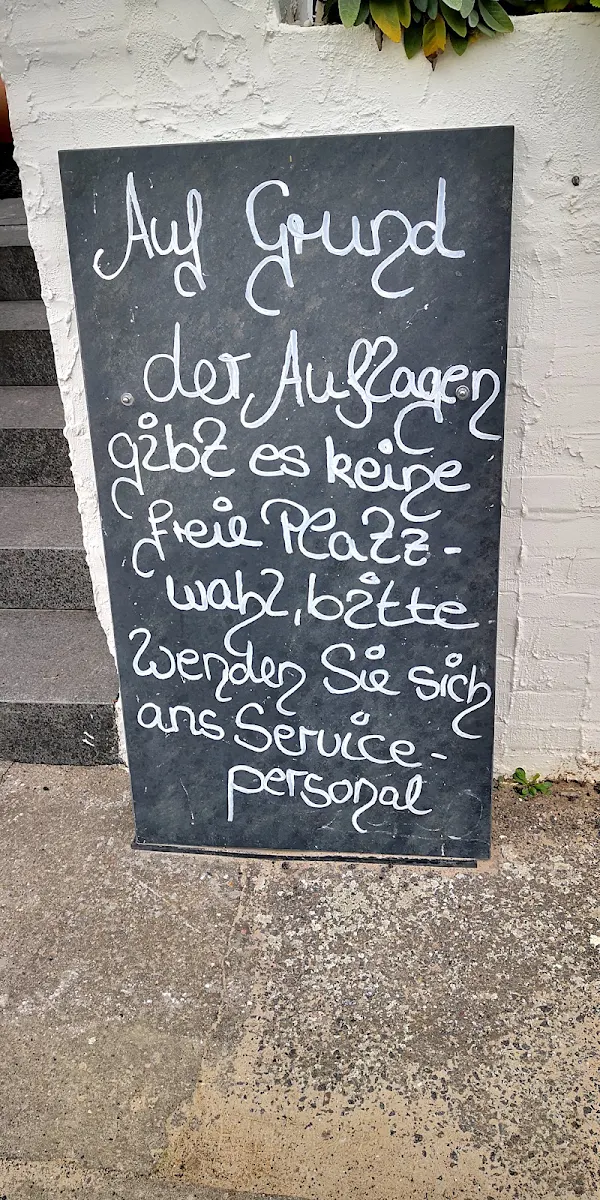 Auf Grund
der Auflagen
gibt es keine
freie Platz-
wahl, bitte
wenden Sie sich
ans Service-
personal